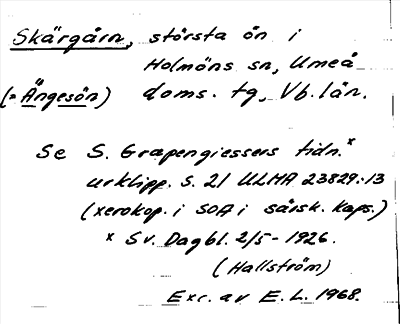 Skärgårn, största ön i
Holmöns sn, Umeå
(= Ängesön) doms. tg, Vb. län.
Se S. Græpengiessers tidn.x
urklipp. S. 21 ULMA 23829:13
(xerokop. i SOA i särsk. kaps.)
x Sv. Dagbl. 2/5 - 1926.
(Hallström)
Exc. av E. L. 1968.